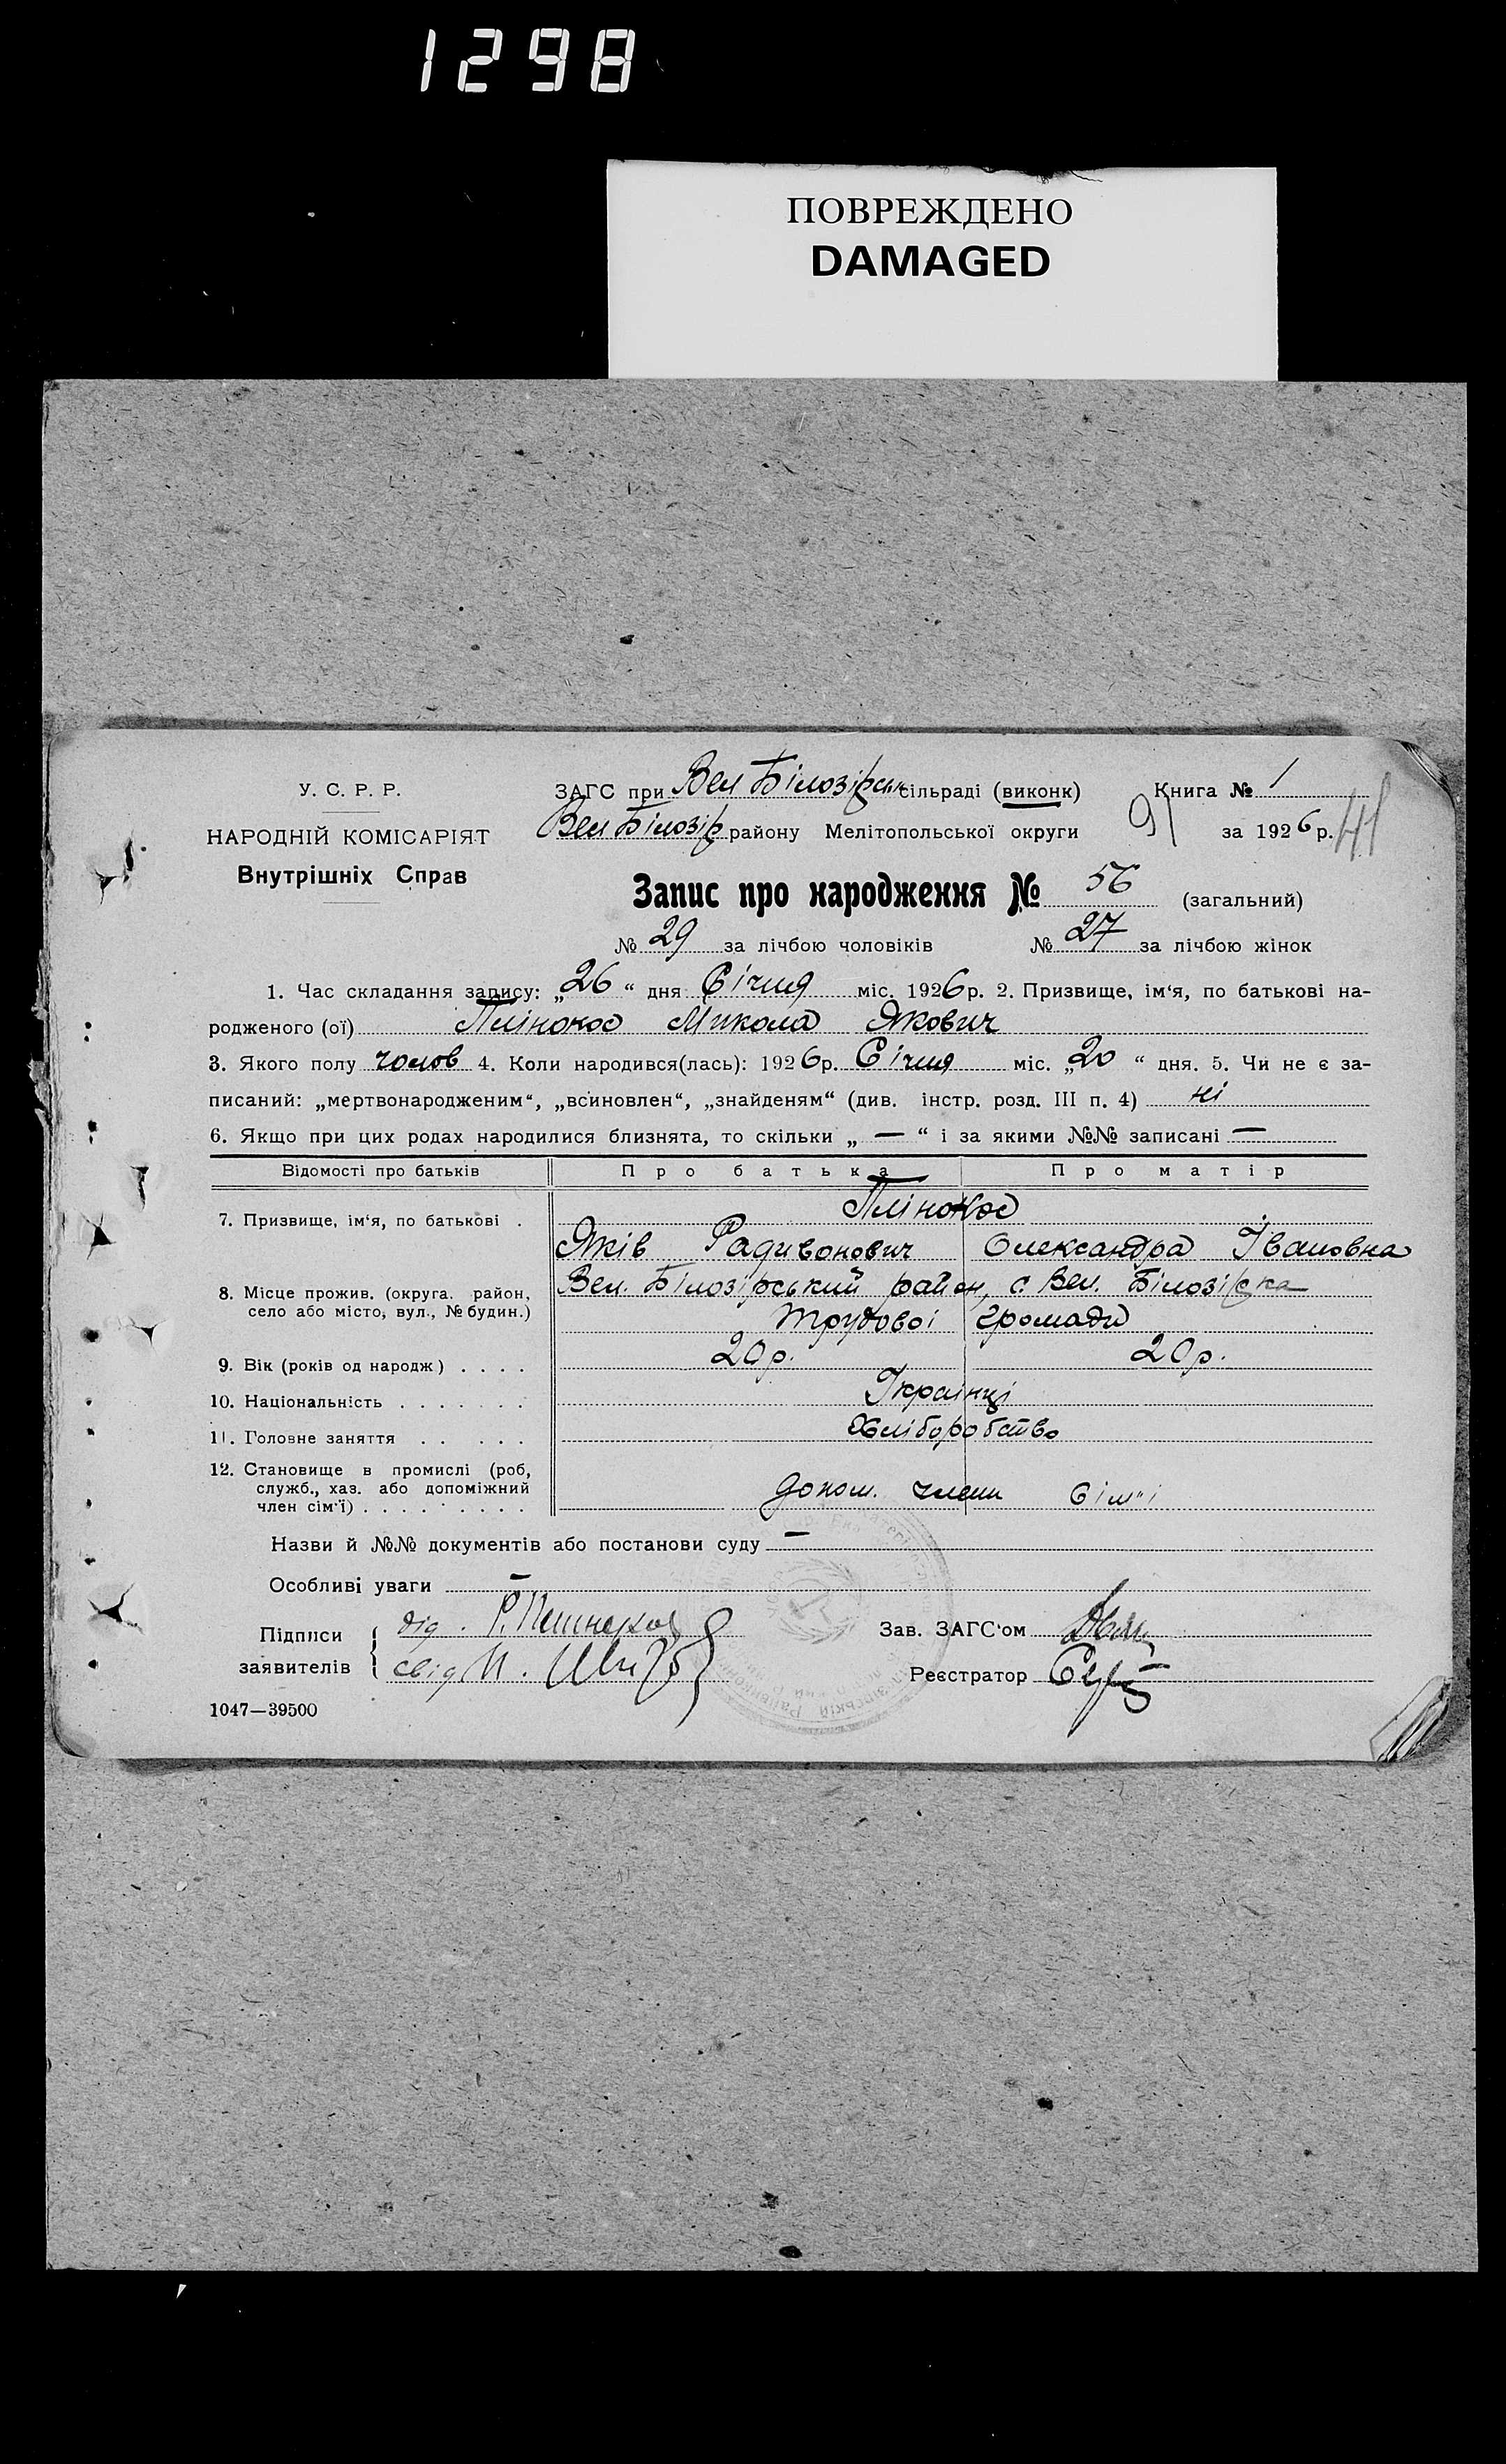 1298
ПОВРЕЖДЕНО
DAMAGED
У. С. Р. Р.
НАРОДНІЙ КОМІСАРІЯТ
Внутрішніх Справ
ЗАГС при Вел Білозірськ сільраді (виконк)
Вел Білозір району Мелітопольської округи
Книга № 1
91 за 1926 р.
Запис про народження № 56 (загальний)
№ 29 за лічбою чоловіків № 27 за лічбою жінок
1. Час складання запису: „26“ дня Січня міс. 1926 р. 2. Призвище, ім‘я, по батькові на-
родженого (ої) Плінокос Микола Якович
3. Якого полу чолов 4. Коли народився(лась): 1926 р. Січня міс. „20“ дня. 5. Чи не є за-
писаний: „мертвонародженим“, „всиновлен“, „знайденям“ (див. інстр. розд. III п. 4) ні
6. Якщо при цих родах народилися близнята, то скільки „ — “ і за якими №№ записані —
Відомості про батьків Про батька Про матір
7. Призвище, ім‘я, по батькові . Плінокос
Яків Радивонович Олександра Івановна
8. Місце прожив. (округа. район, село або місто, вул., № будин.) Вел. Білозірський район, с. Вел. Білозірка
Трудової громади
9. Вік (років од народж) . . . . 20 р. 20 р.
10. Національність . . . . . . . Українці
11. Головне заняття . . . . . Хліборобство
12. Становище в промислі (роб,
служб., хаз. або допоміжний
член сім‘ї) . . . . . . . . . допом. члени сім"ї
Назви й №№ документів або постанови суду —
Особливі уваги —
Підписи
заявителів
дід.
свід
Зав. ЗАГС‘ом
Реєстратор
1047—39500